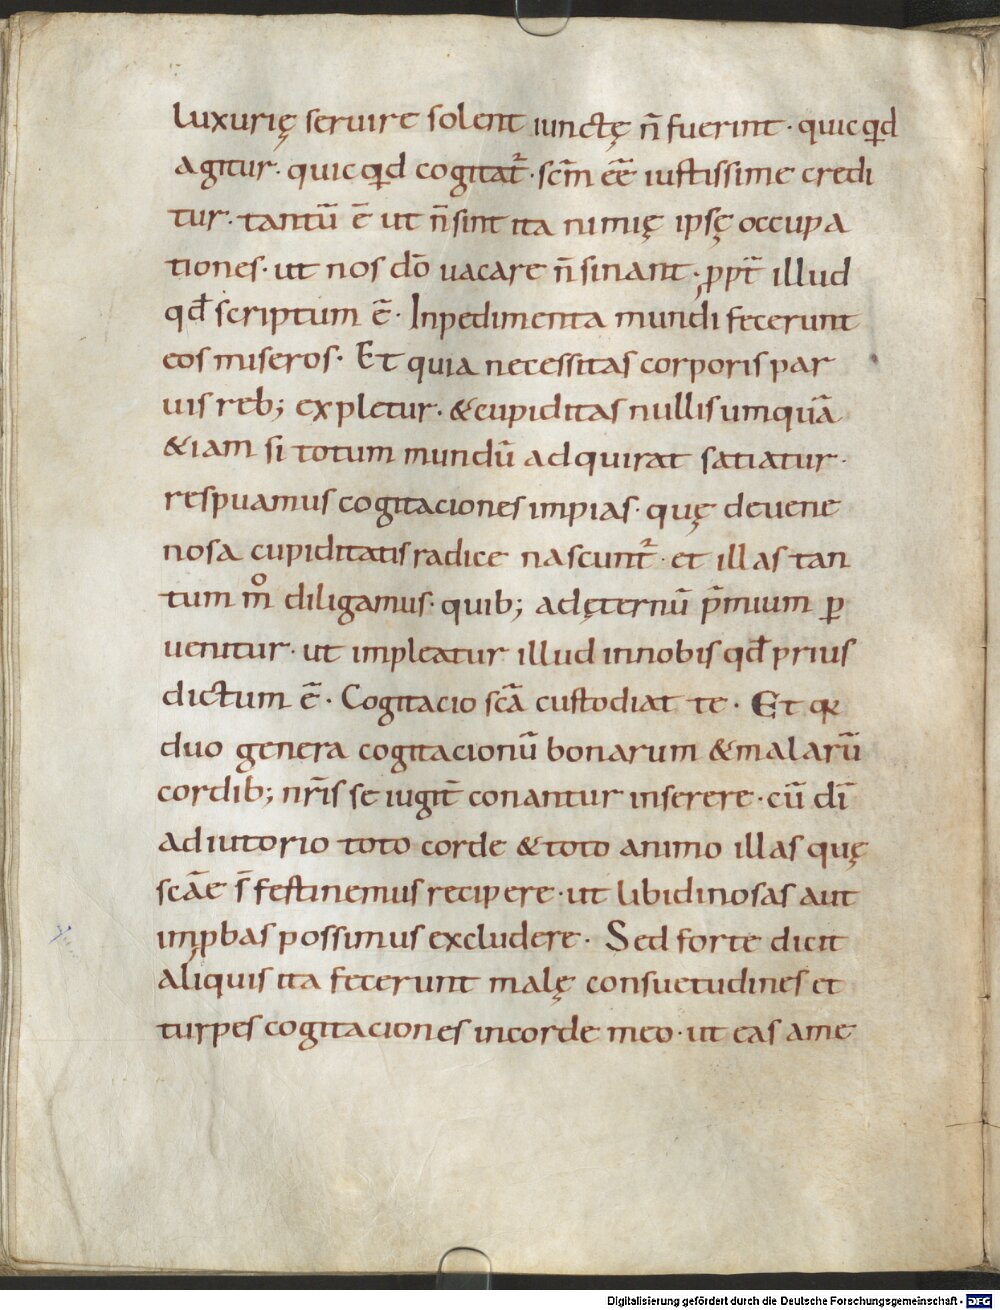 luxurię seruire solent iunctę n̄ fuerint · quicqđ
agitur · quicqđ cogitat᷑ · scm̄ eē iustissime credi
tur · tantū ē ut n̄ sint ita nimię ipsę occupa
tiones · ut nos dō uacare n̄ sinant · ꝓpt̄ illud
qđ scriptum ē · Inpedimenta mundi fecerunt
eos miseros · Et quia necessitas corporis par
uis reb; expletur · &cupiditas nullis umquā
&iam si totum mundū adquirat satiatur ·
respuamus cogitaciones impias · quę deuene
nosa cupiditatis radice nascunt᷑ · et illas tan
tum mͦ diligamus · quib; adęternū p̄mium ꝑ
uenitur · ut impleatur illud innobis qđ prius
dictum ē · Cogitacio scā custodiat te · Et qꝛ
duo genera cogitacionū bonarum &malarū
cordib; nr̄is se iugit̄ conantur inserere · cū dī
adiutorio toto corde &toto animo illas quę
scāe s̄ festinemus recipere · ut libidinosas aut
imꝓbas possimus excludere · Sed forte dicit
aliquis ita fecerunt malę consuetudines et
turpes cogitaciones incorde meo · ut eas ame
Digitalisierung gefördert durch die Deutsche Forschungsgemeinschaft - DFG